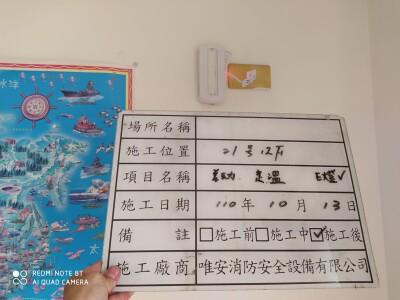 場所名稱
施工位置 21号12F
項目名稱 差動 定溫 E燈✓
施工日期 110年10月13日
備註 □施工前□施工中☑施工後
施工廠商 唯安消防安全設備有限公司
REDMI NOTE 8T
AI QUAD CAMERA